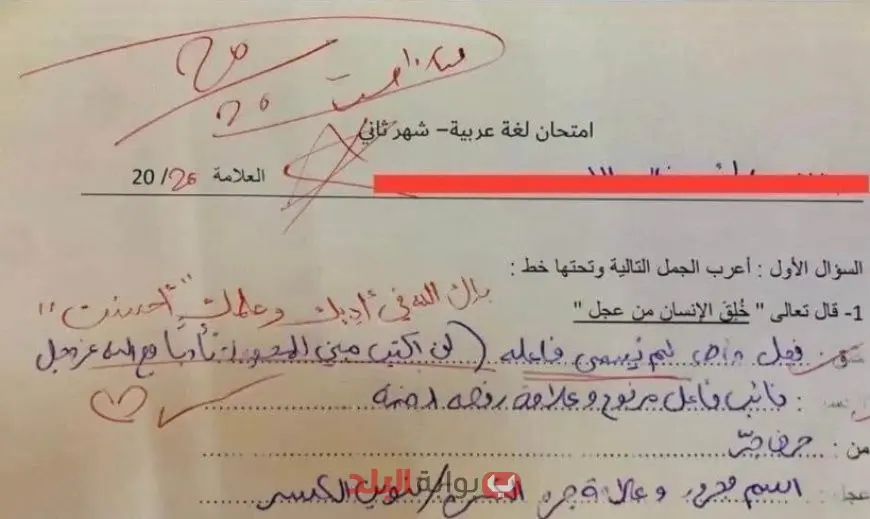 ممتاز أحسنت
20
20
امتحان لغة عربية – شهر ثاني
العلامة 20/ 20
السؤال الأول : أعرب الجمل التالية وتحتها خط :
1- قال تعالى " خُلِقَ الإنسان من عجل "
بارك الله في أدبك وعلمك "أحسنت"
فعل ماض لم يُسمى فاعله (لن اكتب مبني للمجهول تأدباً مع الله عز وجل
: نائب فاعل مرفوع وعلامة رفعه الضمة
من : حرف جرّ
عجل : اسم مجرور وعلامة جره الكسرة / تنوين الكسر
بوابة البلد